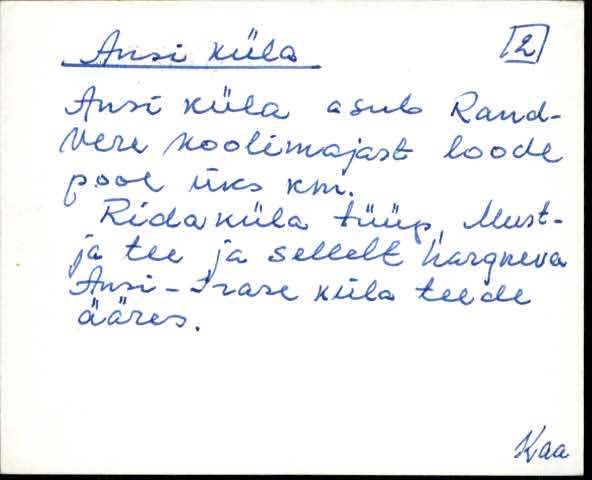 Ansi küla
2
Ansi küla asub Rand-
vere koolimajast loode
pool üks km.
Ridaküla tüüp, Must-
ja tee ja sellelt hargneva
Ansi-Irase küla teede
ääres.
Kaa